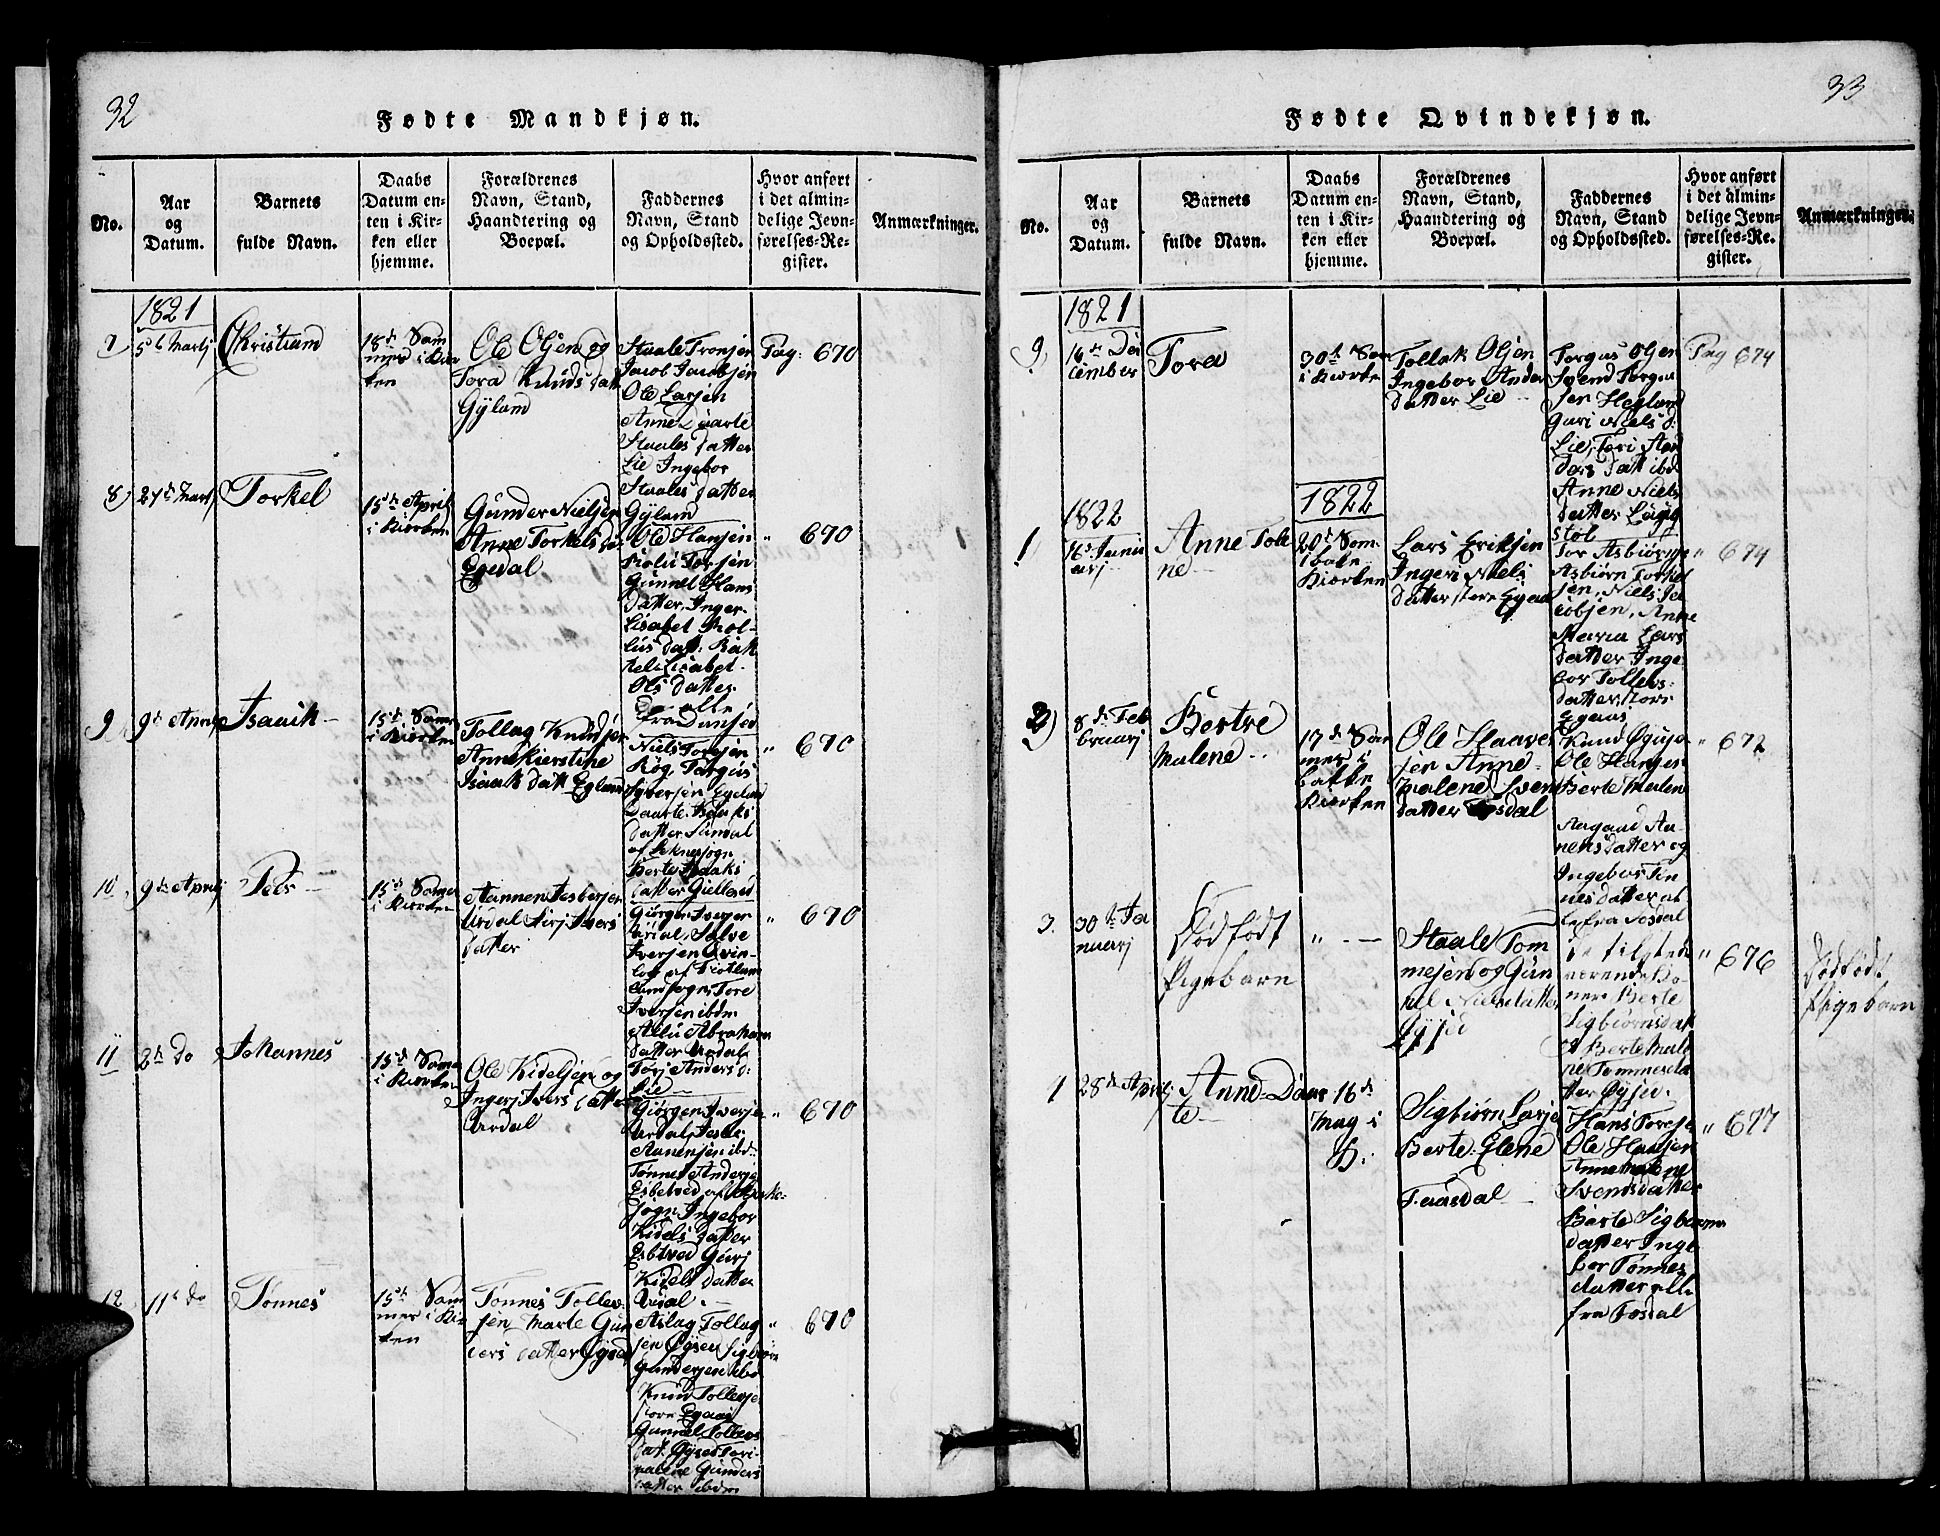 32
Fødte Mandkjøn.
No.
Aar
og
Datum.
Barnets
fulde Navn.
Daabs
Datum en-
ten i Kir-
ken eller
hjemme.
Forældrenes
Navn, Stand,
Haandtering og
Boepæl.
Faddernes
Navn, Stand
og Opholdssted.
Hvor anført
i det almin-
delige Jevn-
førelses-Re-
gister.
Anmærkninger.
1821
7
5 Martj
Christian
18de Som
mer i Kior
ken
Ole Olsen og
Tora Knuds datt
Gyland
Staale Tronsen
Jacob Jacobsen
Ole Larsen
Anne Daarte
Staales datter
Lie Ingebor
Staales datter
Gyland
Pag: 670
8
27de Martj
Torkel
15de April
i Kiorken
Gunder Nielsen
Anne Torkels da
Egedal
Ole Hansen
Rolu Torsen
Gunnel Hans
datter, Inger
Lisabet Rol-
lus datt: Rak
kel Lisabet
Ols datter
alle
" 670
9
9de April
Isaaik
15de Som
i Kiorken
Tollag Knudsen
Anne Kierstine
Isaak datt Egland
Niels Toresen
Røg Targus
Siversen Egeland
Daarte Isaaks
datter Sundal
af Bekne sogn
Berte Isaaks
datter
" 670
10
9de April
Peer
15de Som
i Kiorken
Aannen Asbersen
Urdal Sirj Ivers
datter
Giørgen Iversen
Urdal, Salve
Iversen Qvin-
log af
sogn Tore
Iversen ibdm
Allu Abraham
datter Urdal
Torj Anders d:
Lie
" 670
11
2de do
Johannes
15de Som
i Kiorken
Ole Kidelsen og
Ingerj Ivers datter
Urdal
Giørgen Iverse
Urdal,
Aanensen ibd:
Tønnes Anderse
Esbetved af Bake
sogn Ingebor
Kidels datter
Esbtved Gurj
Kidels datter
Urdal.
" 670
12
11 do
Tønnes
15de Som
mer i Kio
ken
Tønnes Tollev
sen Marte Gun
ders datter Øysed
Aslag Tollag
sen Øysed Sigbiørn
Gundersen ibd
Knud Tollevse
store Egaas
Gunnel Tollevs
dat. Øysed Tori
malene Gunders
datter ibdm
" 670
33
Fødte Qvindekjøn.
No.
Aar
og
Datum.
Barnets
fulde Navn.
Daabs
Datum en-
ten i Kir-
ken eller
hjemme.
Forældrenes
Navn, Stand,
Haandtering og
Boepæl.
Faddernes
Navn, Stand
og Opholdssted.
Hvor anført
i det almin-
delige Jevn-
førelses-Re-
gister.
Anmærkninger.
1821
9
16de De
cember
Tora
30de Som
i Kiorken
Tollak Olsen
Ingebor Ander
datter Lie
Torgus Olsen
Svend Torgu
sen Hegland
Guri Niels d:
Lie, Tori An
ders datt ibd
Anne Niels
datter Løge
støl
Pag 674
1822
1822
1
16de Janu
arj
Anne Tol
ne
20de Som
i bake
Kiorken
Lars Eriksen
Ingeri Niels
datter store Egeaas
Tor Asbiørnse
Asbiørn Torkel
sen, Niels Ja
cobsen, Anne
Maria Lars
datter Inge
bor Tollevs
datter, store
Egeaas
" 674
2
8de Feb
bruarj
Bertre
Malene
17de Som
mer i
bakke
Kiorken
Ole Haave
sen Anne
Malene Sven
datter Tosdal
Knud Øguse
Ole Hansen
Berte Malen
Aagaad Aa-
nensdatter og
Ingebor Tøn
nesdatter al
le fra Tosdal
" 672
3.
30de Ja
nuarj
Dødfødt
Pigebarn
" - -
Staale Tom
mesen og Gun
nel Nielsdatter
Øysed
De tilsted
værende Ko
ner Berte
Sigbiørnsdatt
og Berte Male
ne Tommesdat
ter Øysed.
" 676
Dødfødt
Pigebarn
1
28de April
Anne Daar
te
16de
May i
H.
Sigbiørn Larse
Berte Elene
Taasdal
Hans Torese
Ole Hansen
Anne Malene
Svendsdatter
Barte Sigbiørns
datter Inge
bor Tønnes
datter alle
fra Tosdal
" 677